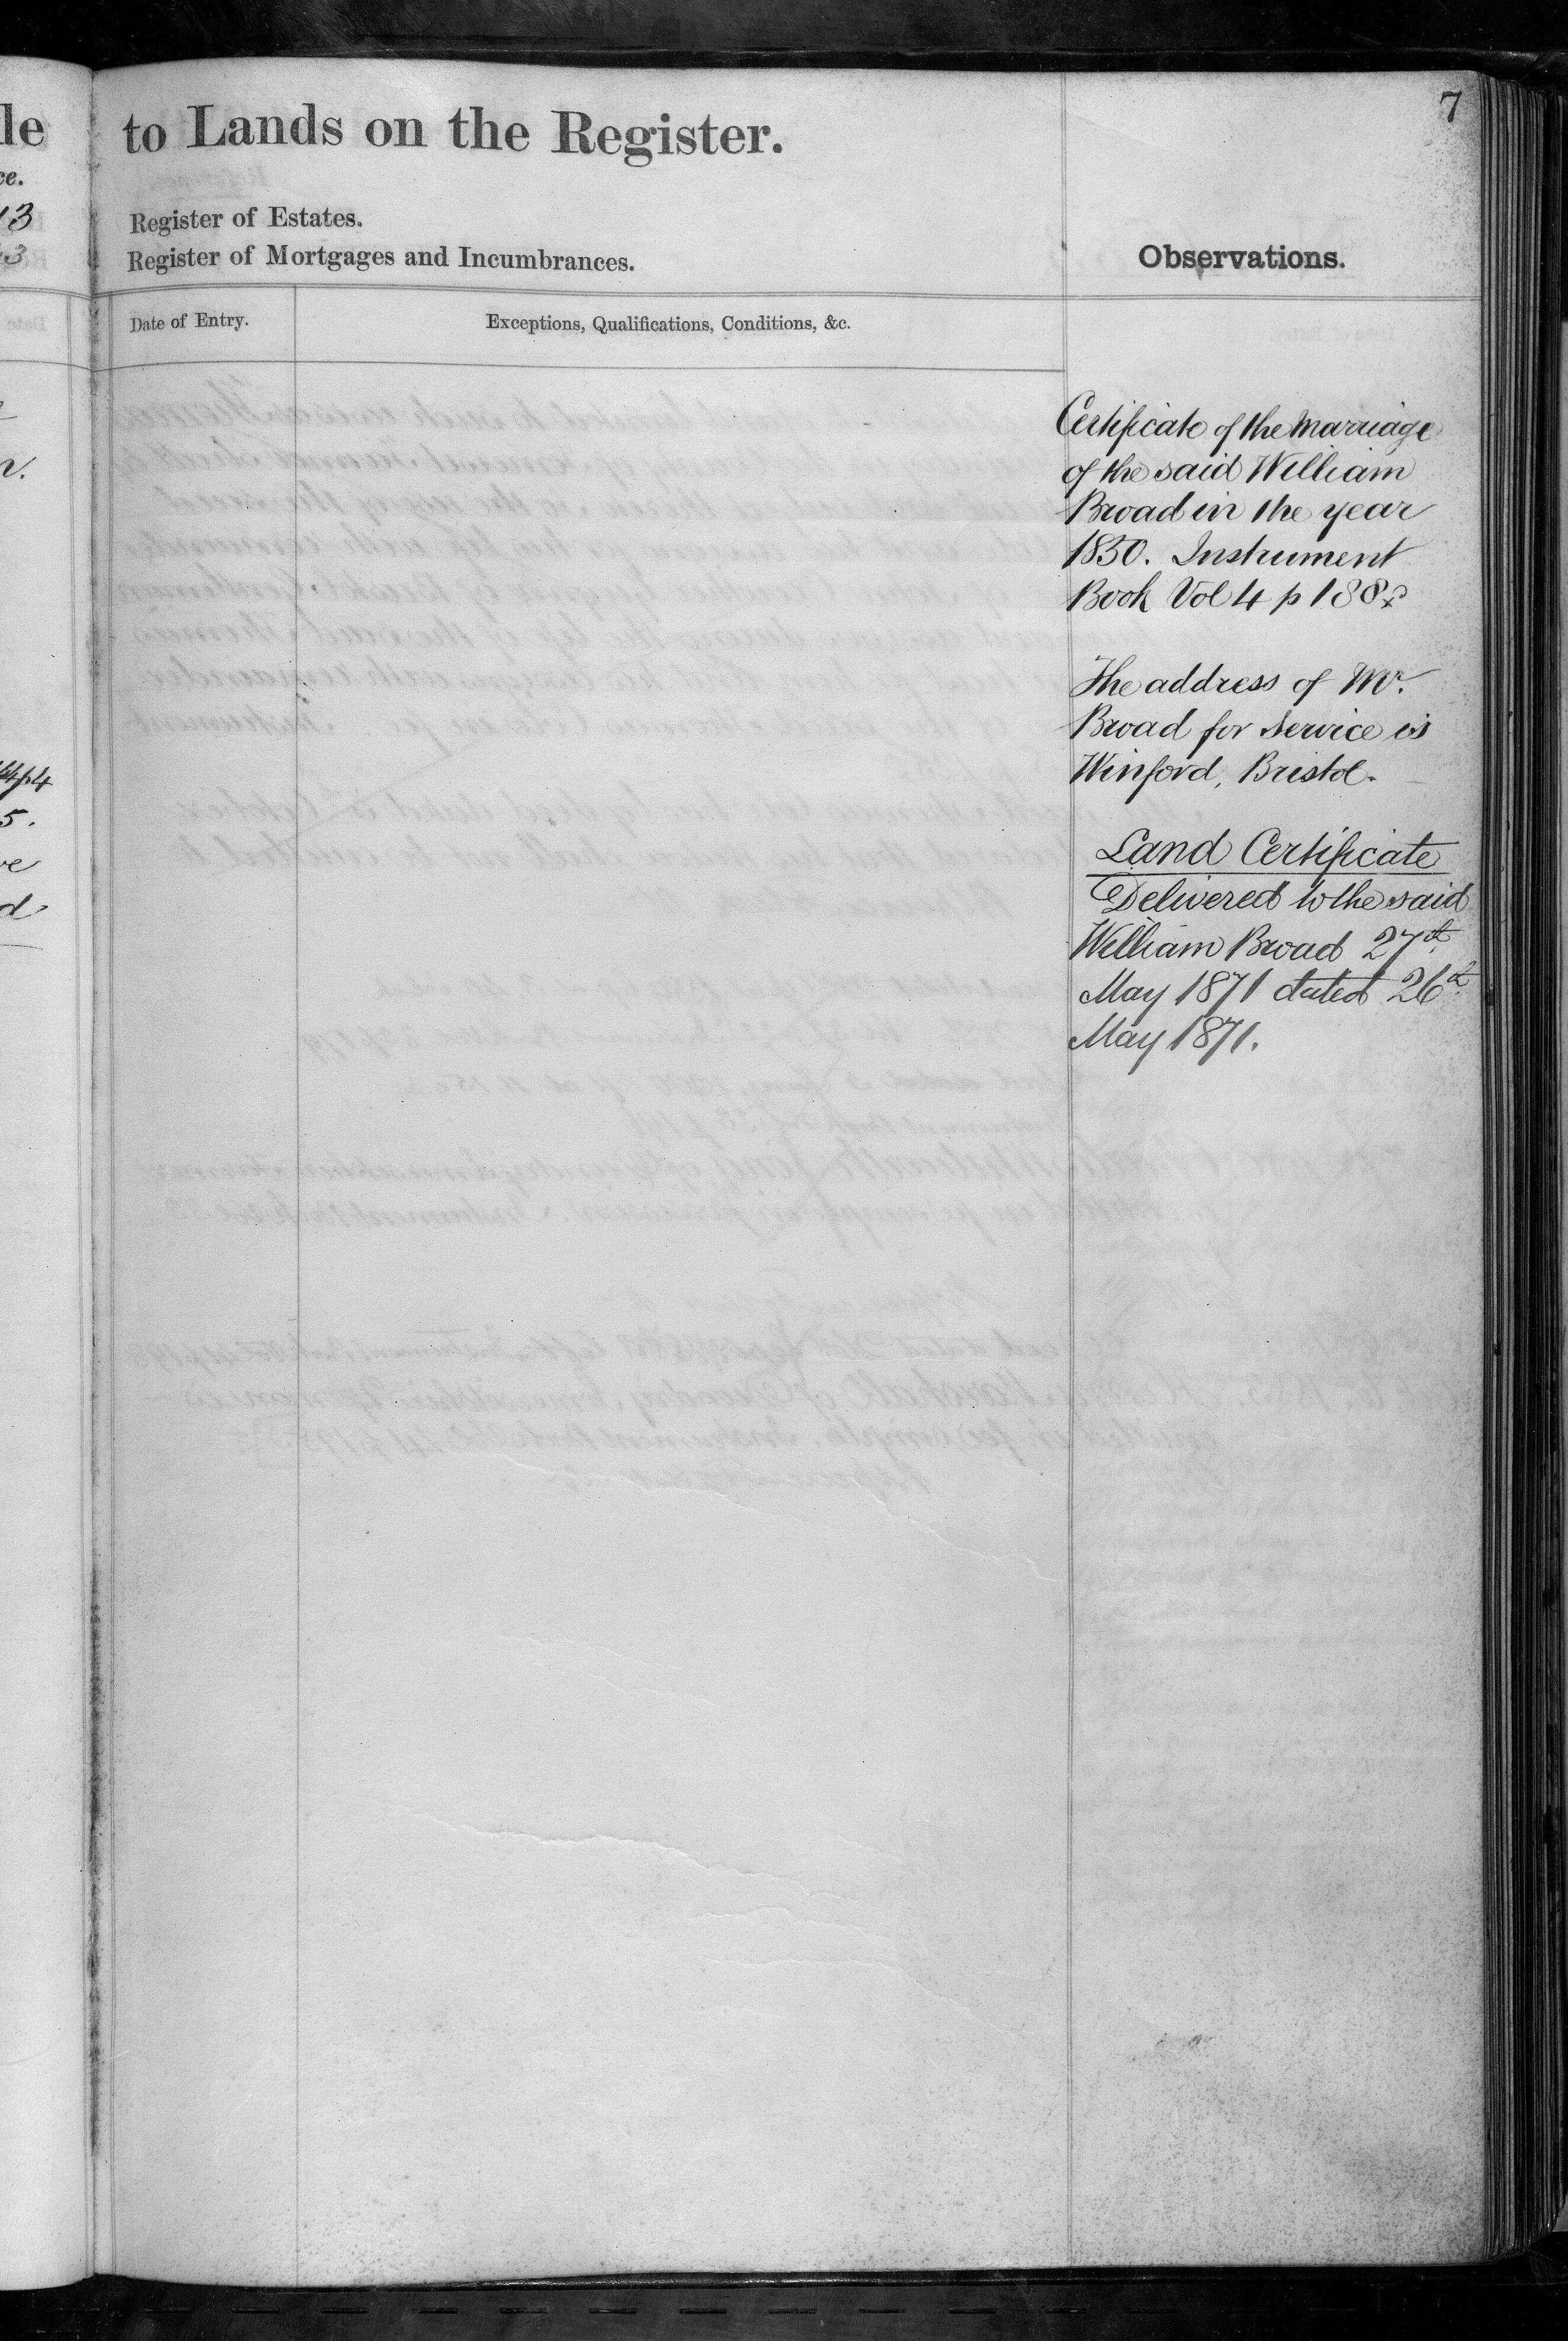 le
ce.
13
43
44p4
5.
ve
d
7
to Lands on the Register.
Register of Estates.
Register of Mortgages and Incumbrances.
Observations.
Date of Entry.
Exceptions, Qualifications, Conditions, &c.
Certificate of the Marriage
of the said William
Broad in the year
1850. Instrument
Book Vol 4 p 188
The address of Mr.
Broad for Service is
Winford, Bristol.
Land Certificate
Delivered to the said
William Broad 27th
May 1871 dated 26th
May 1871.